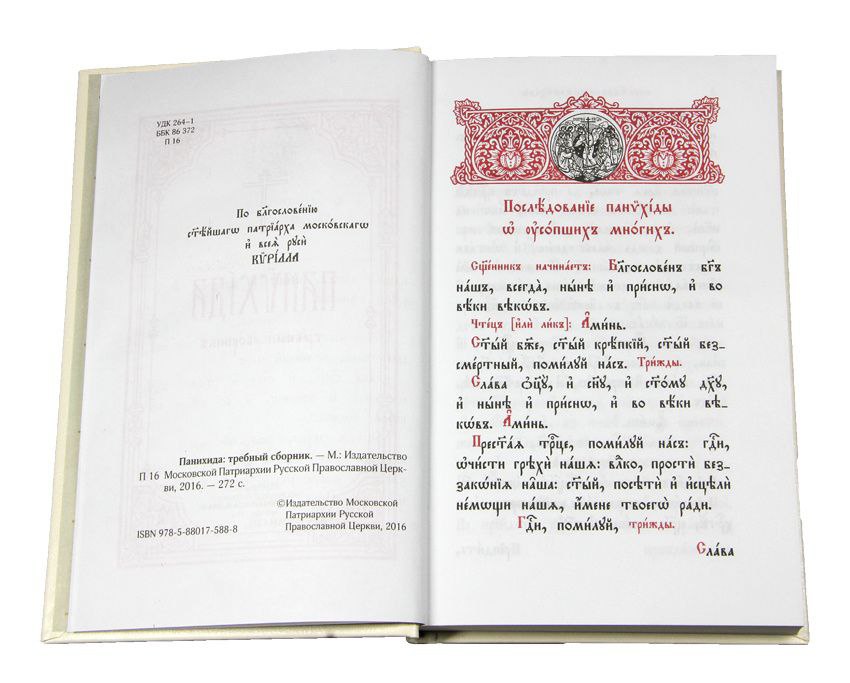 УДК 264–1
ББК 86 372
П 16
По блг҃ослове́нїю
ст҃ѣ́йшагѡ патрїа́рха моско́вскагѡ
и҆ всеѧ̀ рꙋсѝ
КѶРІ́ЛЛА
Панихида: требный сборник. — М.: Издательство
П 16 Московской Патриархии Русской Православной Церк-
ви, 2016. — 272 с.
©Издательство Московской
Патриархии Русской
Православной Церкви, 2016
ISBN 978-5-88017-588-8
Послѣ́дованїе панѷхі́ды
ѡ҆ ᲂу҆со́пшихъ мно́гихъ.
Сщ҃е́нникъ начина́етъ: Блг҃ослове́нъ бг҃ъ
на́шъ, всегда̀, ны́нѣ и҆ при́снѡ, и҆ во
вѣ́ки вѣкѡ́въ.
Чте́цъ [и҆лѝ ли́къ]: А҆ми́нь.
Ст҃ы́й бж҃е, ст҃ы́й крѣ́пкїй, ст҃ы́й без_
сме́ртный, поми́лꙋй на́съ. Три́жды.
Сла́ва ѻ҆ц҃ꙋ̀, и҆ сн҃ꙋ, и҆ ст҃о́мꙋ дх҃ꙋ,
и҆ ны́нѣ и҆ при́снѡ, и҆ во вѣ́ки вѣ_
кѡ́въ. А҆ми́нь.
Прест҃а́ѧ трⷪ҇це, поми́лꙋй на́съ: гдⷭ҇и,
ѡ҆чи́сти грѣхѝ на́шѧ: вл҃ко, простѝ без_
закѡ́нїѧ на́ша: ст҃ы́й, посѣтѝ и҆ и҆сцѣлѝ
не́мѡщи на́шѧ, и҆́мене твоегѡ̀ ра́ди.
Гдⷭ҇и, поми́лꙋй, три́жды.
Сла́ва